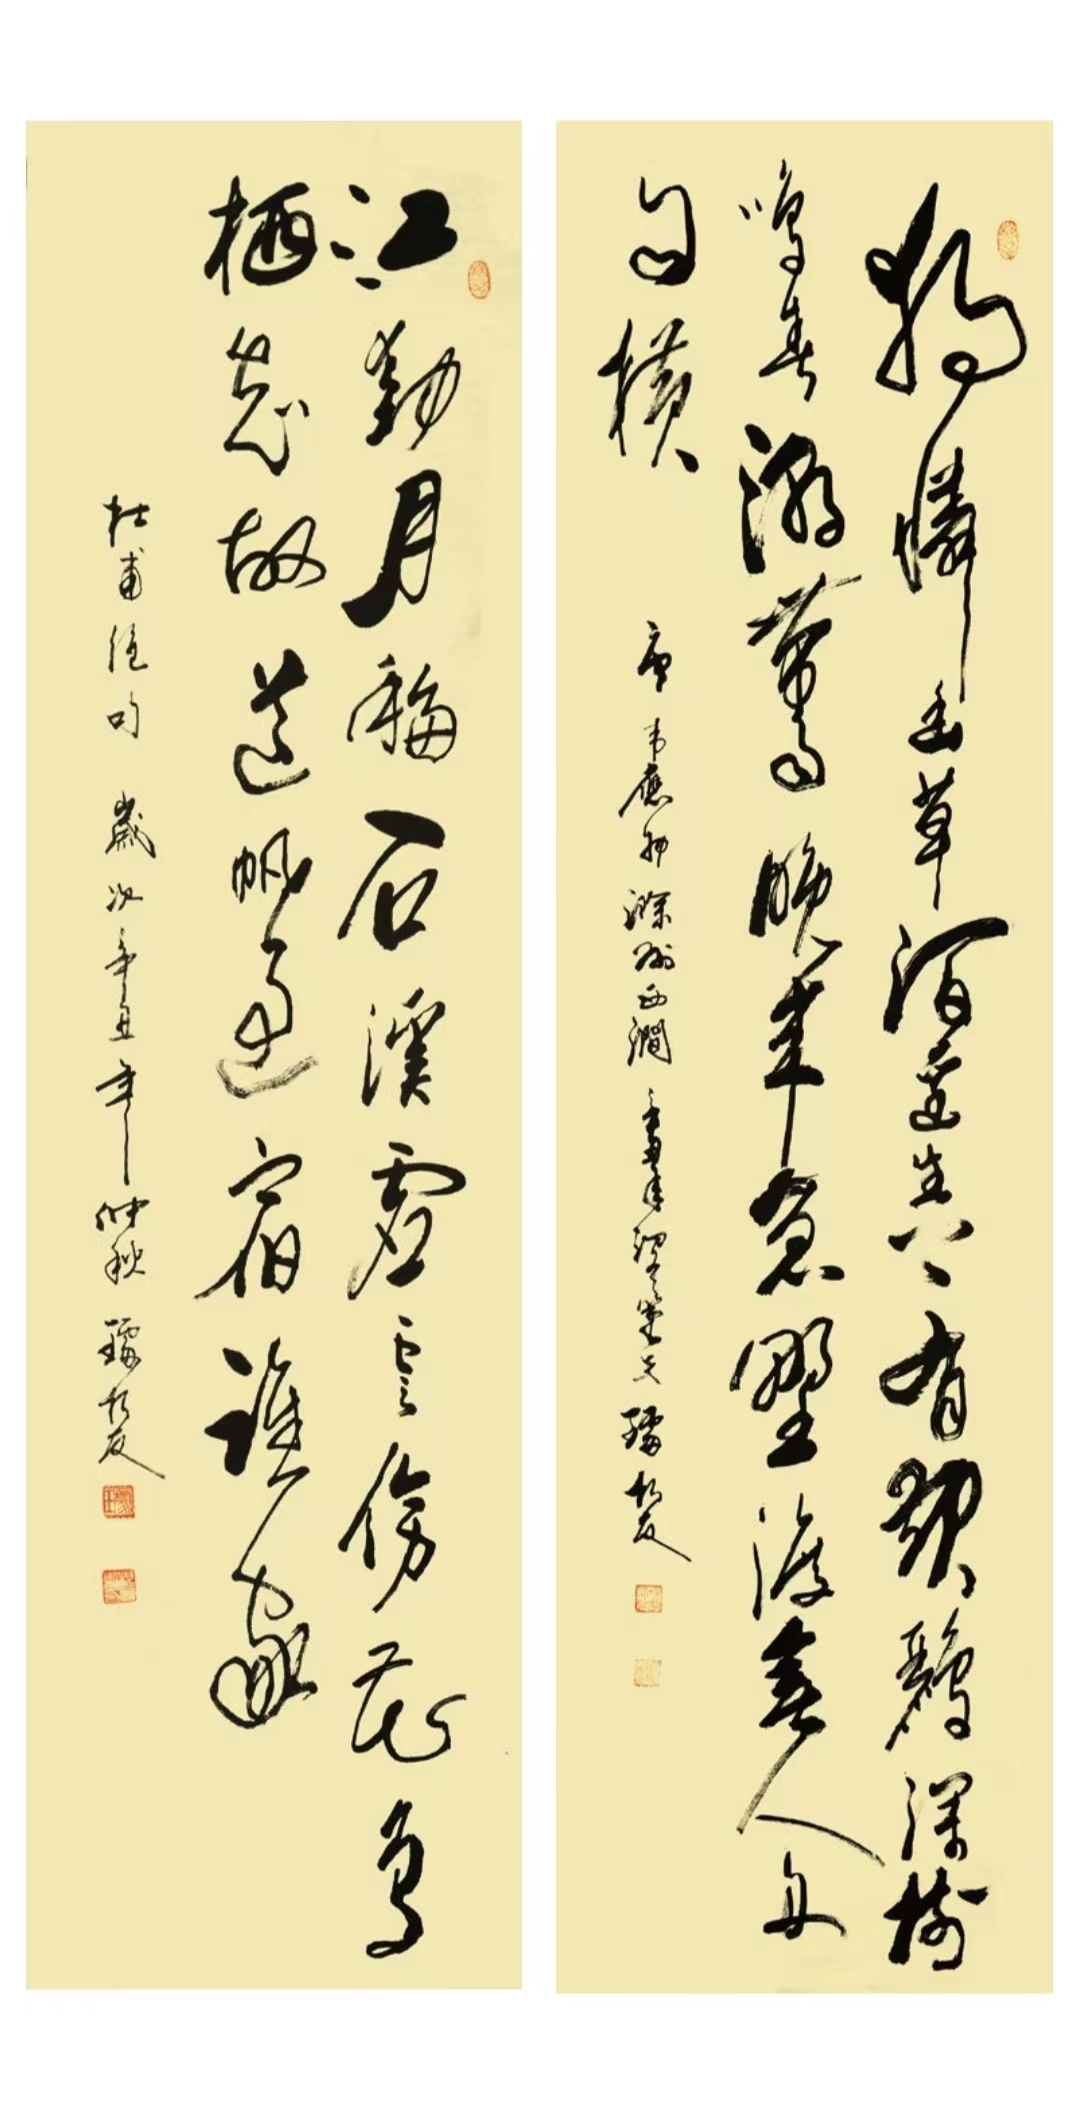 獨憐幽草澗邊生上有黃鸝深樹
鳴春潮帶雨晚來急野渡無人舟
自橫
唐韋應物滁州西澗
江動月移石溪虛雲傍花鳥
栖知故道帆過宿誰家
杜甫絕句 歲次辛丑年仲秋